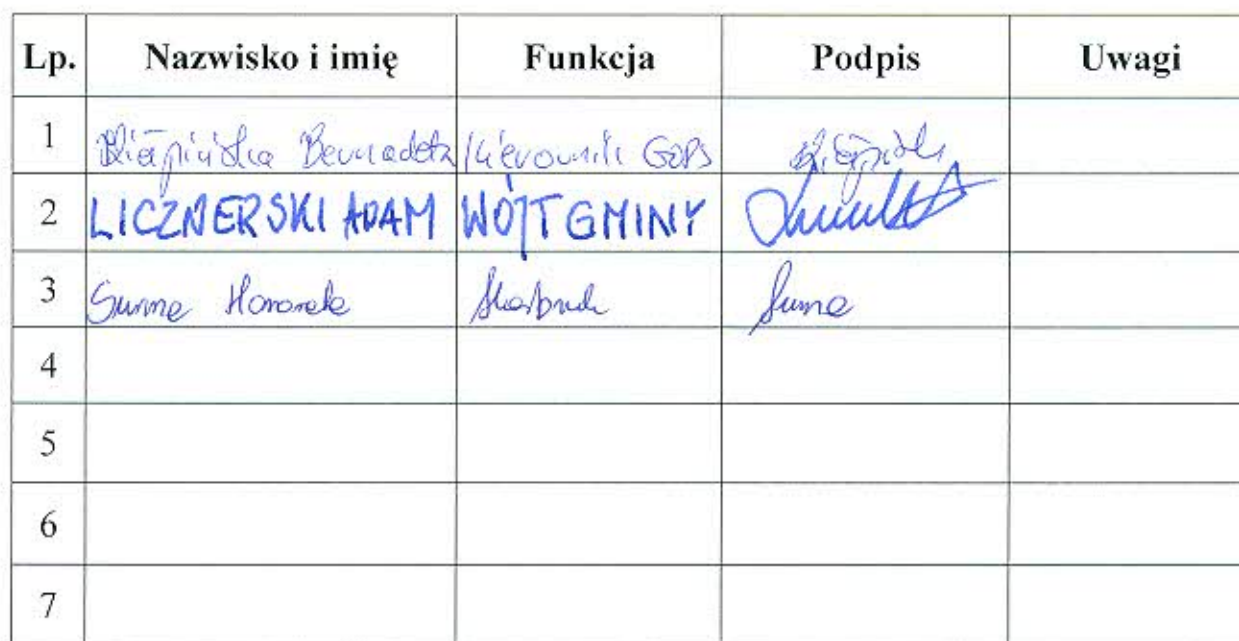 Lp. Nazwisko i imię Funkcja Podpis Uwagi
1 Bernadeta Kierownik GOPS
2 LICZNERSKI ADAM WÓJT GMINY
3 Suma Honorata Skarbnik Suma
4
5
6
7